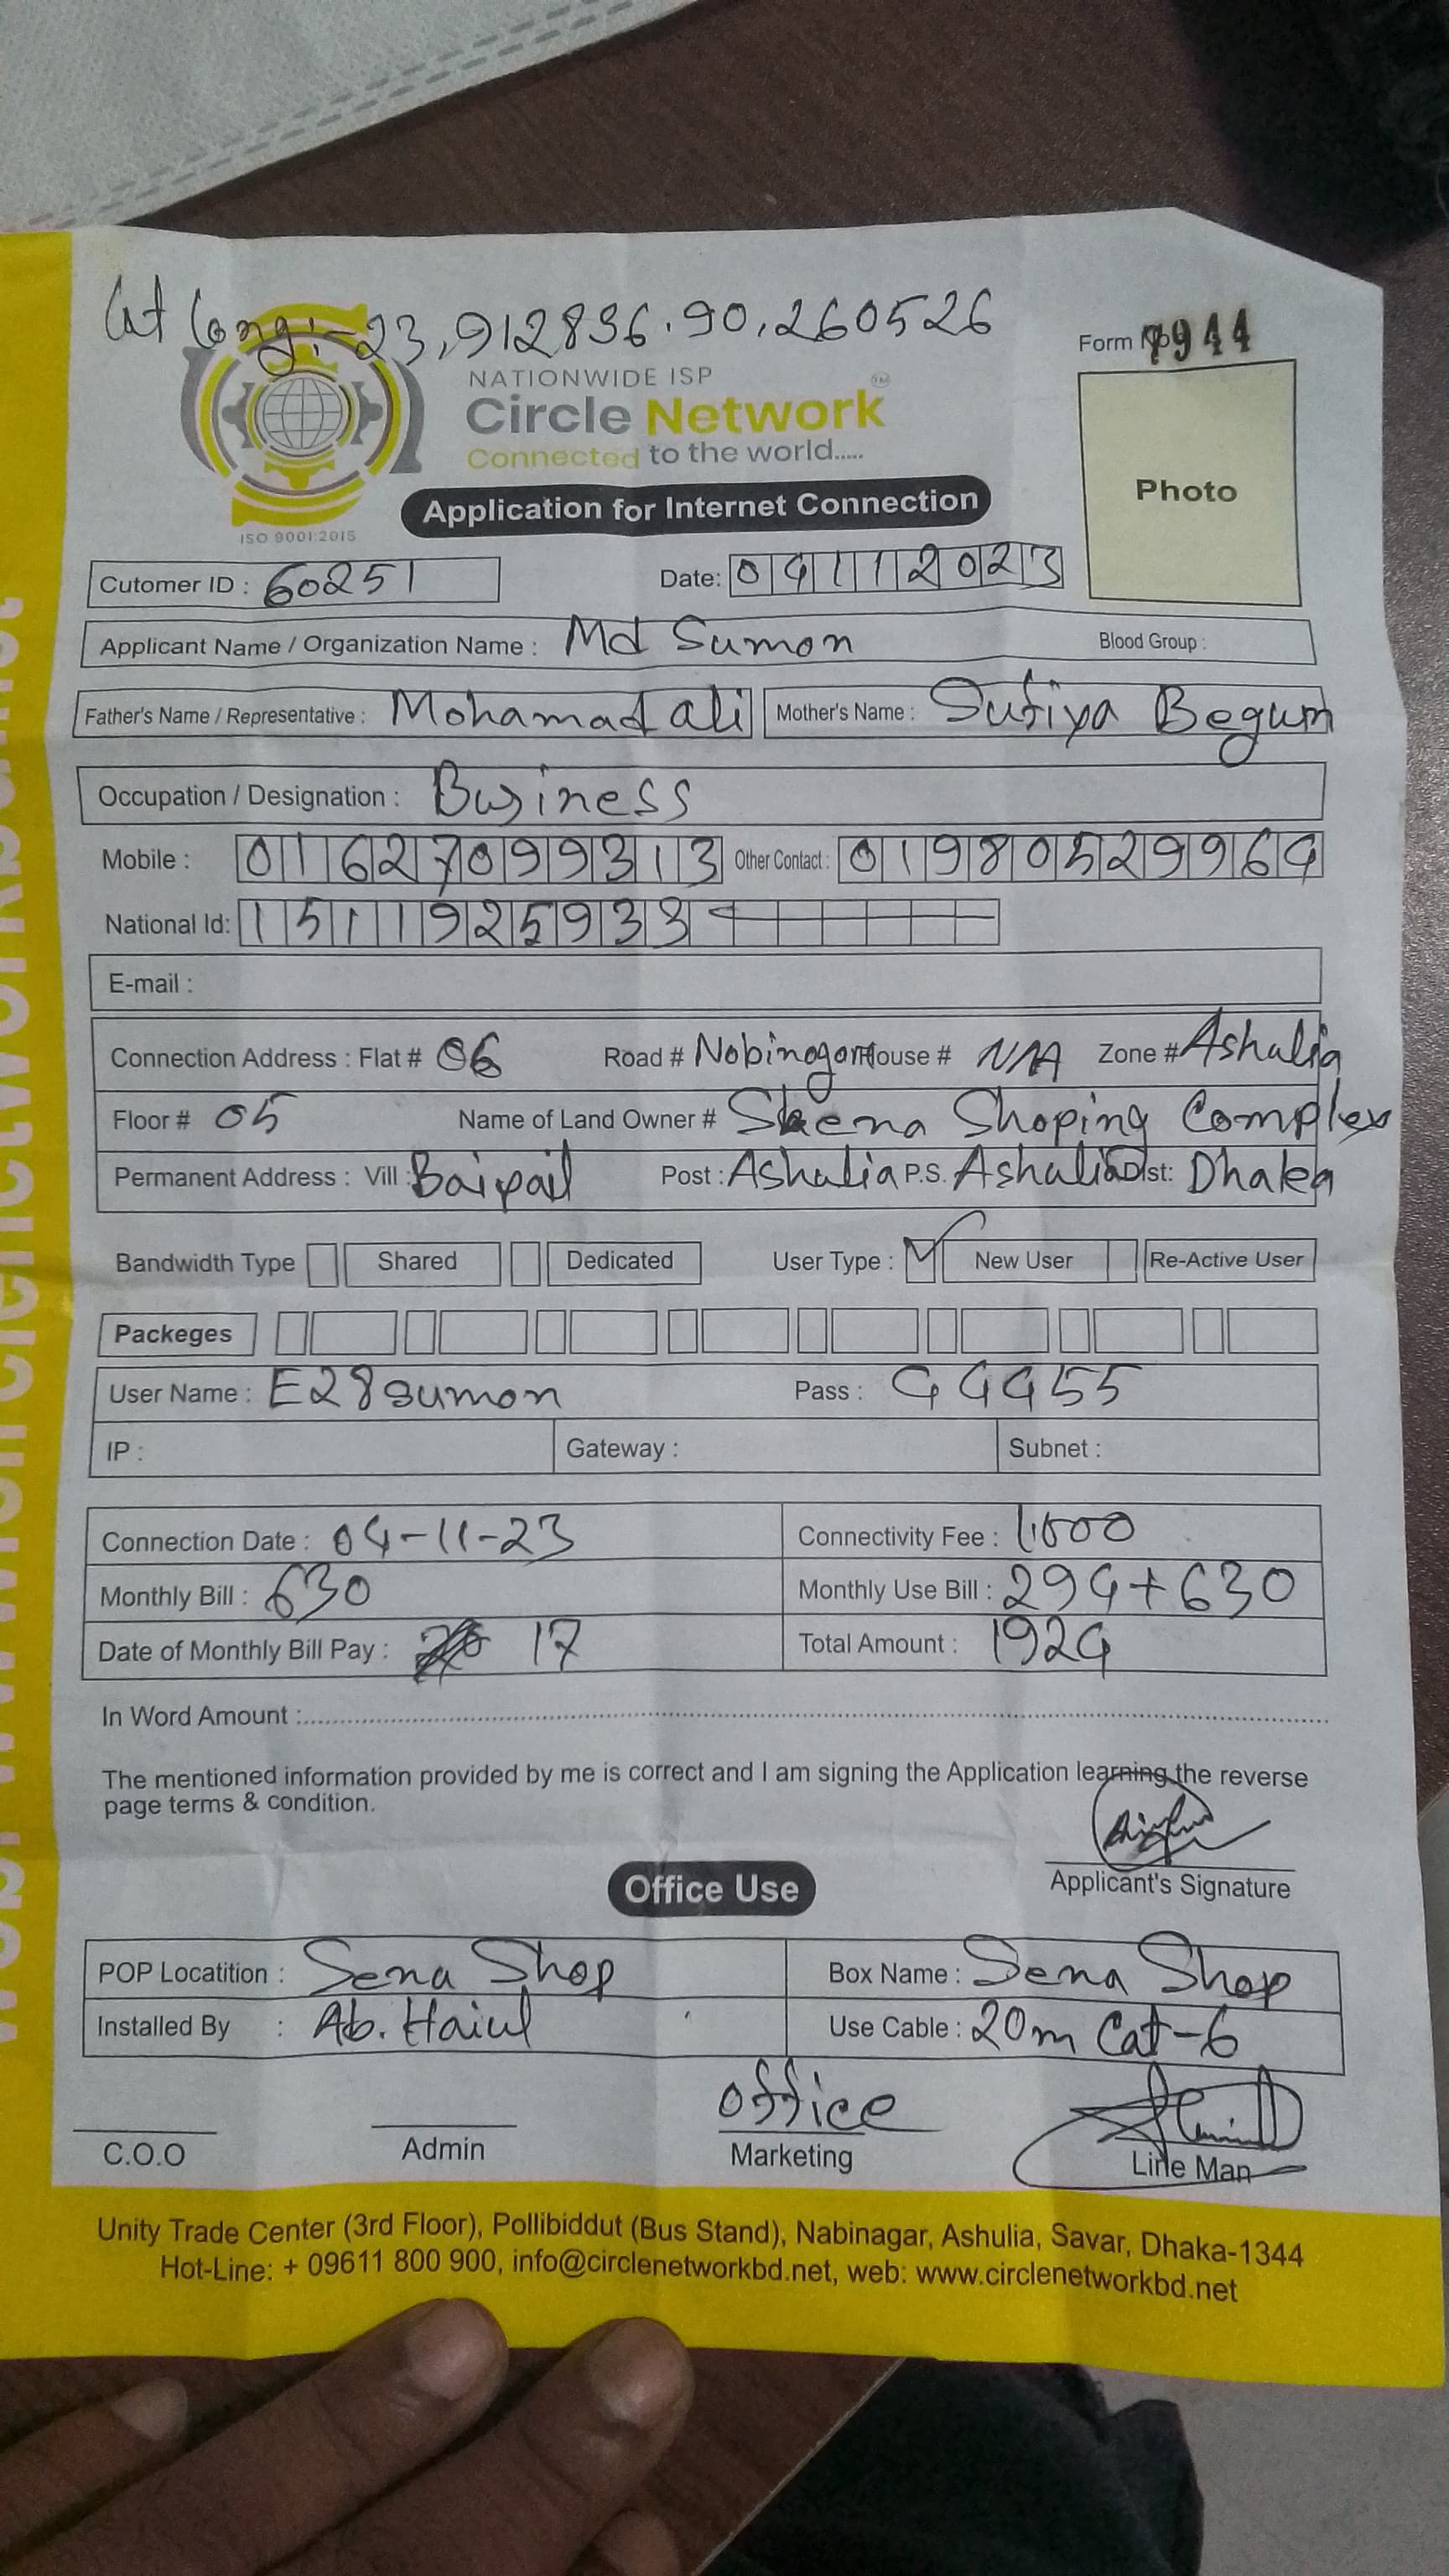 Lat Long:-23,912836.90,260526
Form No 7944
NATIONWIDE ISP
Circle Network TM
Connected to the world.....
Photo
Application for Internet Connection
ISO 9001:2015
Cutomer ID : 60251 Date: 04112023
Applicant Name / Organization Name : Md Sumon Blood Group :
Father's Name / Representative : Mohamad ali Mother's Name : Sufiya Begum
Occupation / Designation : Business
Mobile : 01627099313 Other Contact : 01980529964
National Id: 1511925933
E-mail :
Connection Address : Flat # 06 Road # Nobinogor House # N/A Zone # Ashulia
Floor # 05 Name of Land Owner # Shoping Complex
Permanent Address : Vill : Baipail Post : Ashulia P.S. Ashulia Dist: Dhaka
Bandwidth Type Shared Dedicated User Type : New User Re-Active User
Packeges
User Name : E28sumon Pass : 44455
IP : Gateway : Subnet :
Connection Date : 04-11-23 Connectivity Fee : 1000
Monthly Bill : 630 Monthly Use Bill : 294+630
Date of Monthly Bill Pay : 17 Total Amount : 1924
In Word Amount :
The mentioned information provided by me is correct and I am signing the Application learning the reverse
page terms & condition.
Applicant's Signature
Office Use
POP Locatition : Sena Shop Box Name : Sena Shop
Installed By : Ab. Use Cable : 20m Cat-6
office
C.O.O Admin Marketing Line Man
Unity Trade Center (3rd Floor), Pollibiddut (Bus Stand), Nabinagar, Ashulia, Savar, Dhaka-1344
Hot-Line: + 09611 800 900, info@circlenetworkbd.net, web: www.circlenetworkbd.net